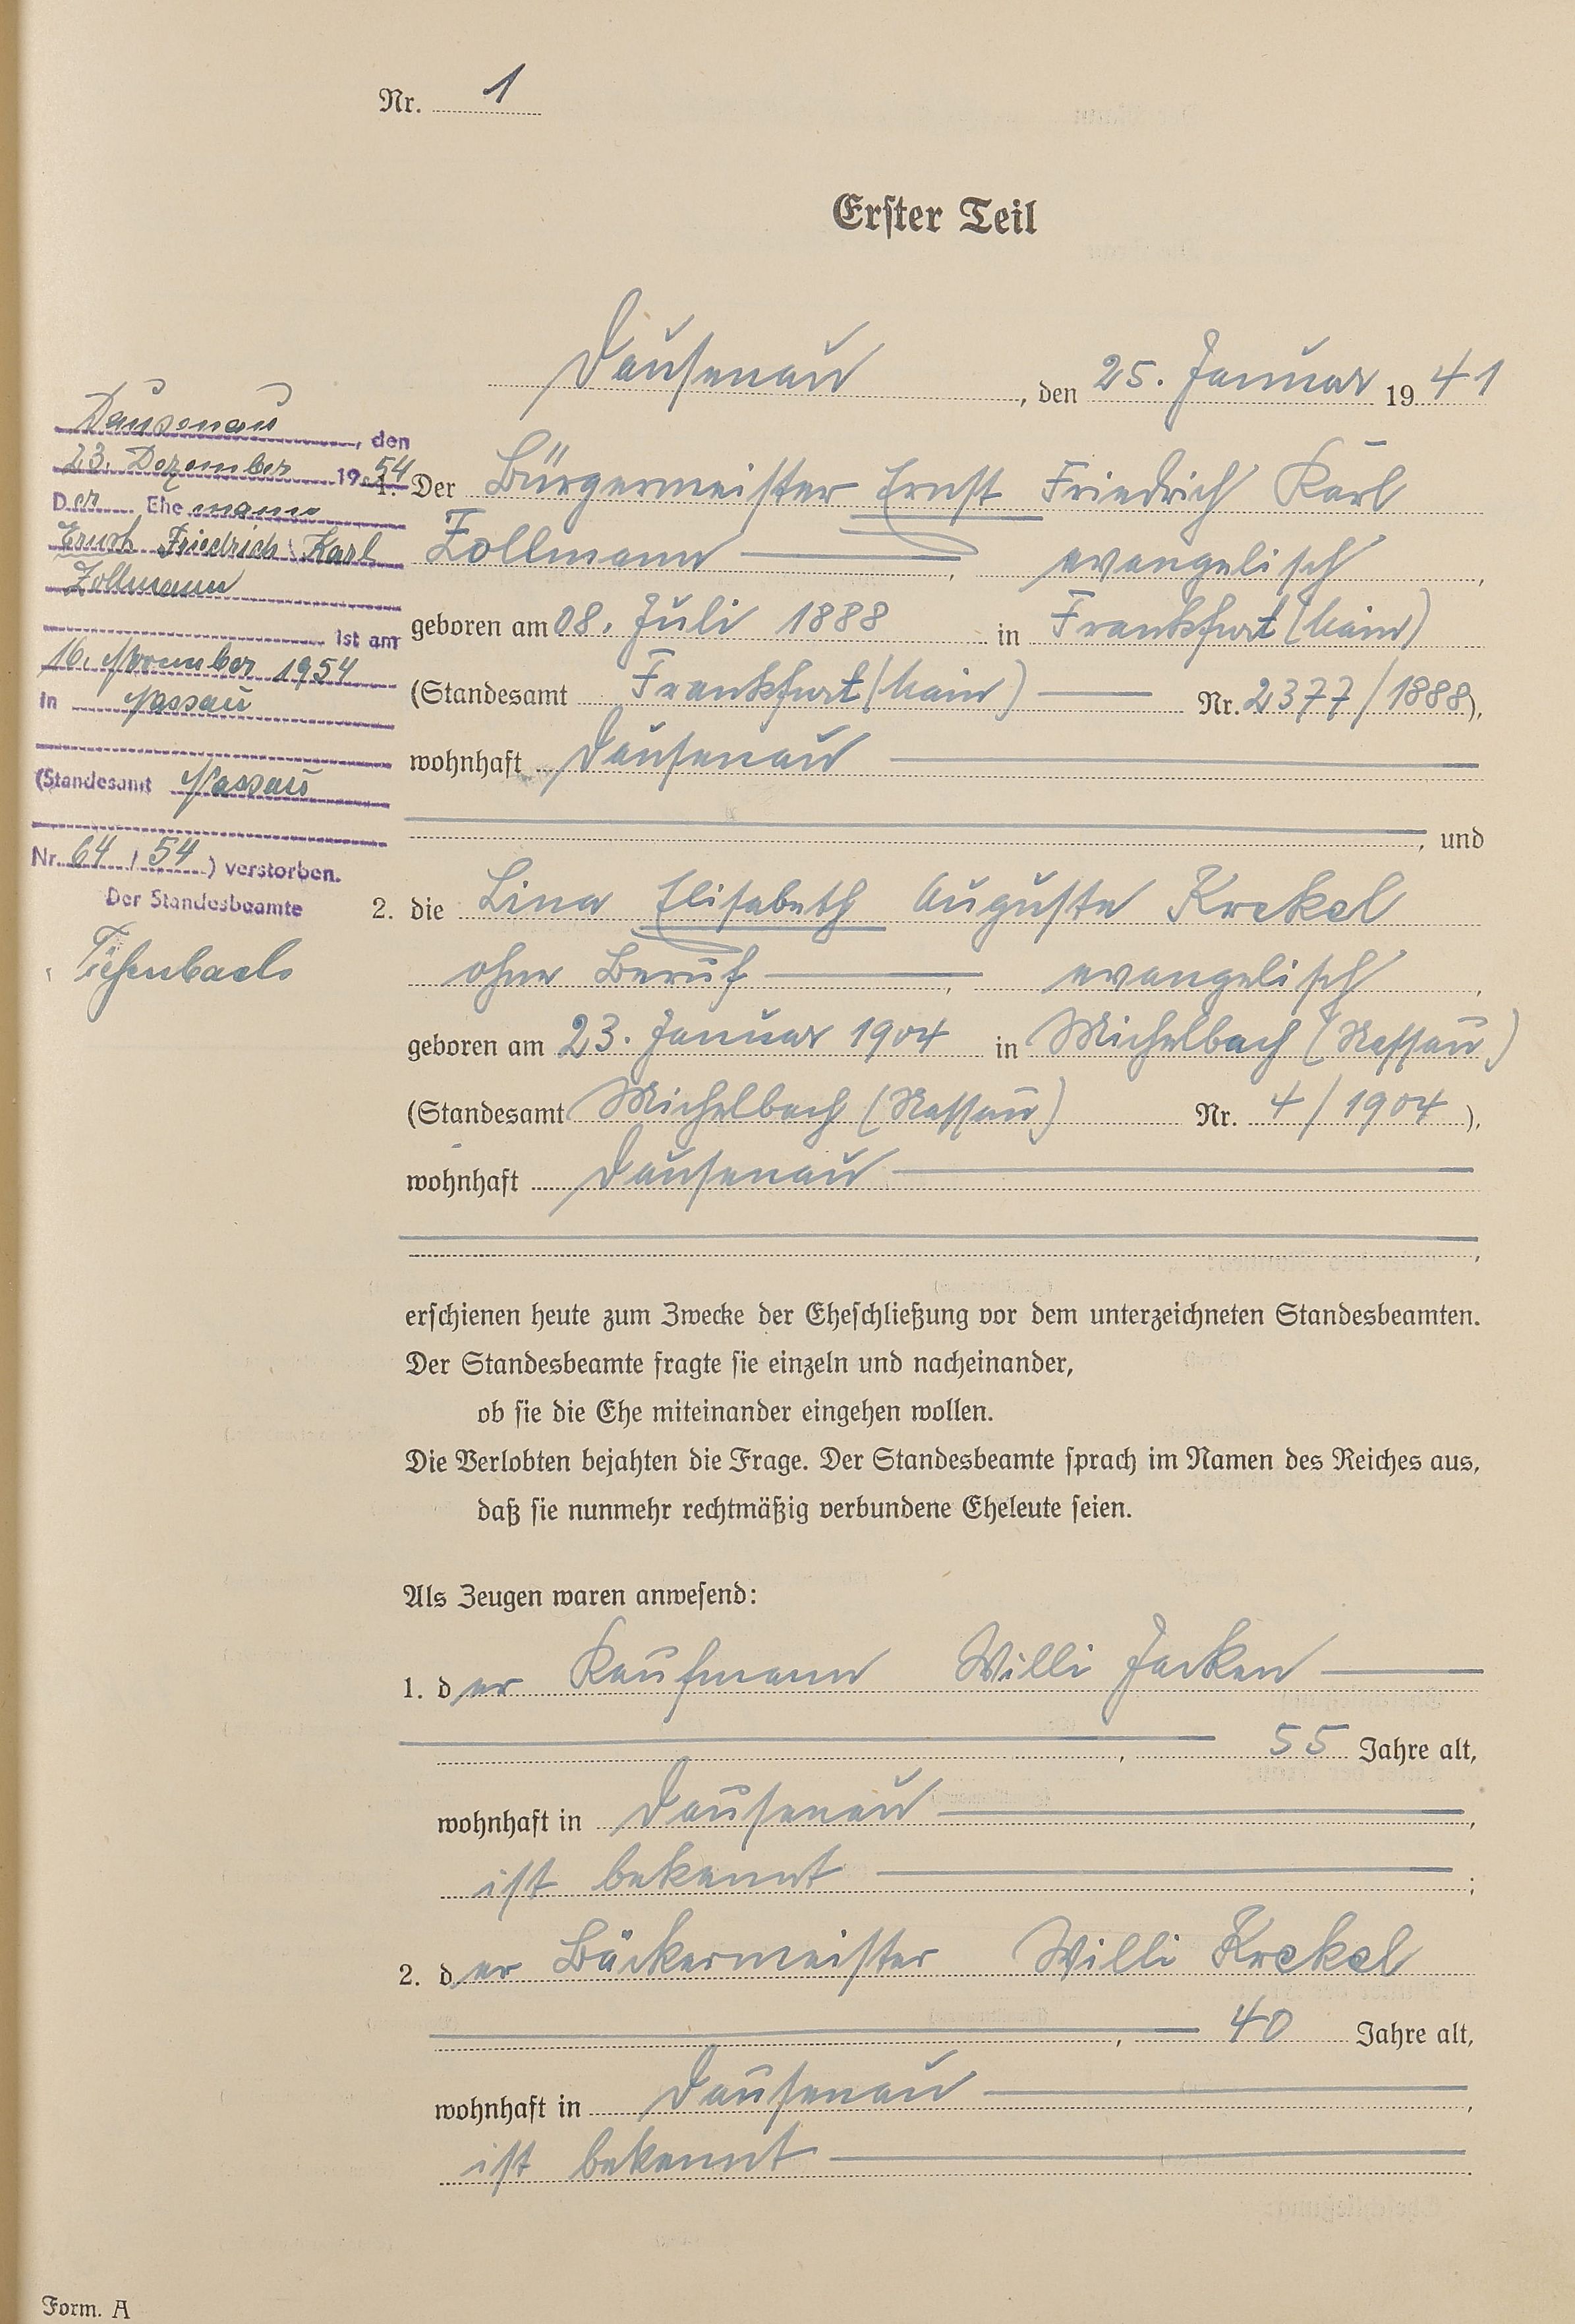 Nr. 1
Erster Teil
Dausenau, den 25. Januar 1941
Dausenau, den
23. Dezember 1954
Der Ehemann
Ernst Friedrich Karl
Zollmann
ist am
16. November 1954
in Nassau
(Standesamt Nassau
Nr. 64 / 54) verstorben.
Der Standesbeamte
1. Der Bürgermeister Ernst Friedrich Karl
Zollmann, evangelisch,
geboren am 08. Juli 1888 in Frankfurt (Main)
(Standesamt Frankfurt (Main) Nr. 2377/1888),
wohnhaft Dausenau
, und
2. die Lina Elisabeth Auguste Krekel
ohne Beruf, evangelisch,
geboren am 23. Januar 1904 in Michelbach (Nassau)
(Standesamt Michelbach (Nassau) Nr. 4/1904),
wohnhaft Dausenau
,
erschienen heute zum Zwecke der Eheschließung vor dem unterzeichneten Standesbeamten.
Der Standesbeamte fragte sie einzeln und nacheinander,
ob sie die Ehe miteinander eingehen wollen.
Die Verlobten bejahten die Frage. Der Standesbeamte sprach im Namen des Reiches aus,
daß sie nunmehr rechtmäßig verbundene Eheleute seien.
Als Zeugen waren anwesend:
1. der Kaufmann Willi
, 55 Jahre alt,
wohnhaft in Dausenau,
ist bekannt;
2. der Bäckermeister Willi Krekel
, 40 Jahre alt,
wohnhaft in Dausenau,
ist bekannt.
Form. A